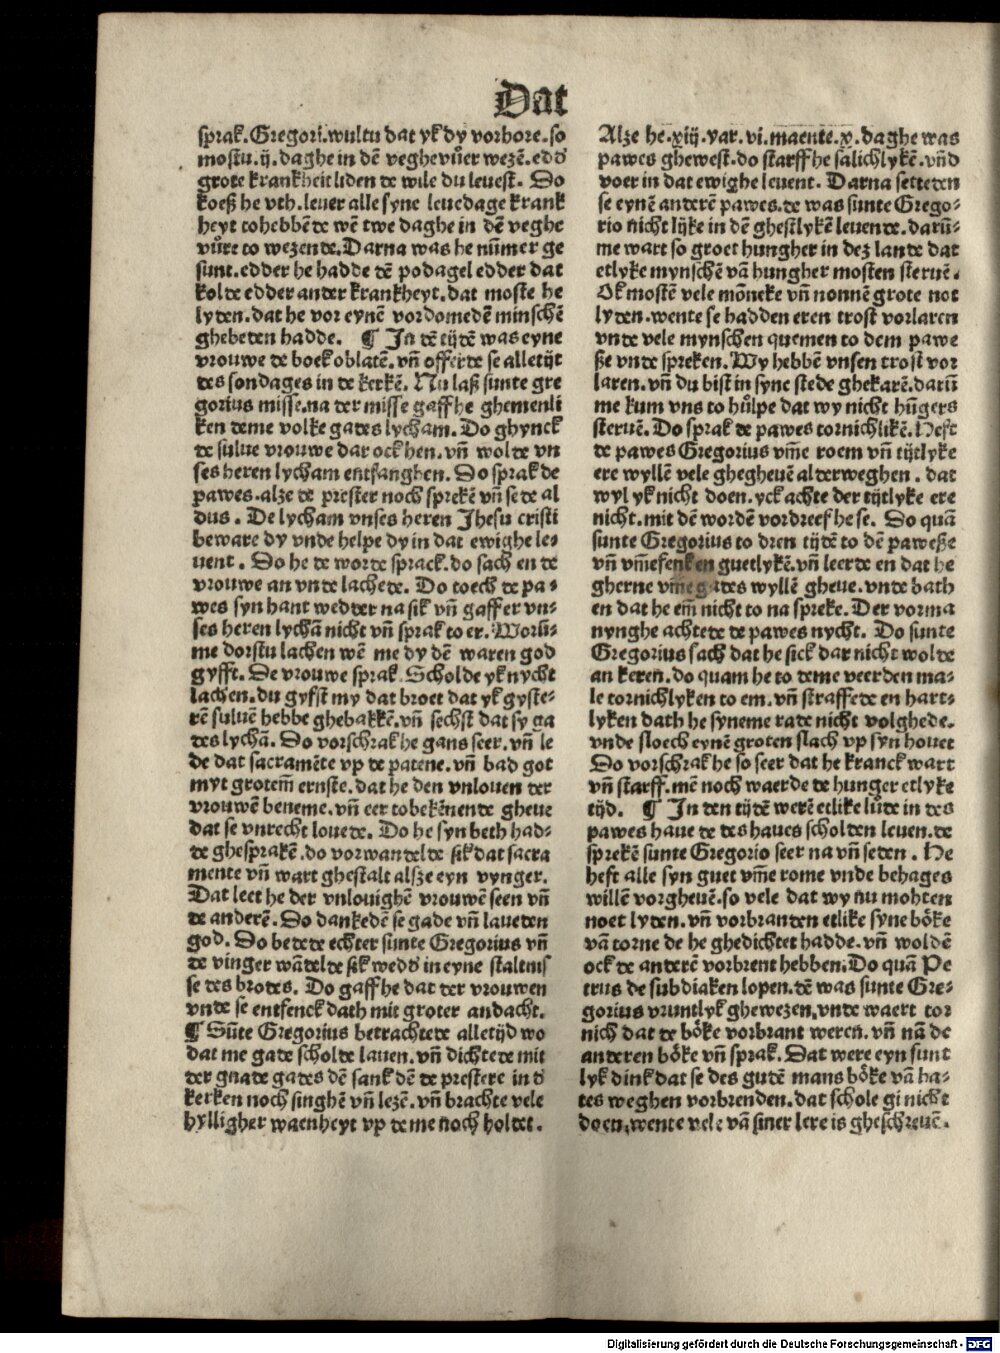 Dat
sprak. Gregori. wultu dat yk dy vorhore. so
mostu. ij. daghe in dē veghevůer wezē. edď
grote krankheit liden de wile du leuest. Do
koeß he vth. leuer alle syne leuedage krank
heyt tohebbēde wē twe daghe in dē veghe
vůre to wezende. Darna was he nūmer ge
sunt. edder he hadde dē podagel edder dat
kolde edder ander krankheyt. dat moste he
lyden. dat he vor eynē vordomedē minschē
ghebeden hadde. ¶ In dē tijdē was eyne
vrouwe de boek oblatē. vñ offerde se alletijt
des sondages in de kerkē. Nu laß sunte gre
gorius misse. na der misse gaff he ghemenli
ken deme volke gades lycham. Do ghynck
de sulue vrouwe dar ock hen. vñ wolde vn
ses heren lycham entfanghen. Do sprak de
pawes. alze de prester noch sprekē vñ sede al
dus. De lycham vnses heren Jhesu cristi
beware dy vnde helpe dy in dat ewighe le⸗
uent. Do he de worde sprack. do sach en de
vrouwe an vnde lachede. Do toech de pa⸗
wes syn hant wedder na sik vñ gaff er vn⸗
ses heren lychā nicht vñ sprak to er. Worū⸗
me dorstu lachen wē me dy dē waren god
gyfft. De vrouwe sprak. Scholde yk nycht
lachen. du gyfst my dat broet dat yk gyste⸗
rē suluē hebbe ghebakkē. vñ sechst dat sy ga
des lychā. Do vorschrak he gans seer. vñ le
de dat sacramēte vp de patene. vñ bad got
myt grotem̄ ernste. dat he den vnlouen der
vrouwē beneme. vñ eer tobekēnende gheue
dat se vnrecht louede. Do he syn beth had⸗
de ghesprakē. do vorwandelde sik dat sacra
mente vñ wart ghestalt alsze eyn vynger.
Dat leet he der vnlouighē vrouwē seen vñ
de anderē. Do dankedē se gade vñ laueden
god. Do bedede echter sunte Gregorius vñ
de vinger wādelde sik wedď in eyne staltnis
se des brodes. Do gaff he dat der vrouwen
vnde se entfenck dath mit groter andacht.
¶ Sūte Gregorius betrachtede alletijd wo
dat me gade scholde lauen. vñ dichtede mit
der gnade gades dē sank dē de prestere in ď
kerken noch singhē vñ lezē. vñ brachte vele
hylligher waenheyt vp deme noch holdet.
Alze he. xiij. yar. vi. maente. x. daghe was
pawes ghewest. do starff he salichlykē. vñd
voer in dat ewighe leuent. Darna setteden
se eynē anderē pawes. de was sunte Grego⸗
rio nicht lijke in dē ghestlykē leuende. darū⸗
me wart so groet hungher in dez lande dat
etlyke mynschē vā hungher mosten steruē.
Ok mostē vele mōneke vñ nonnē grote not
lyden. wente se hadden eren trost vorlaren
vnde vele mynschen quemen to dem pawe
ße vnde spreken. Wy hebbē vnsen trost vor
laren. vñ du bist in syne stede ghekarē. darū
me kum vns to hůlpe dat wy nicht hūgers
steruē. Do sprak de pawes tornichlikē. Heft
de pawes Gregorius vm̄e roem vñ tijtlyke
ere wyllē vele ghegheuē alderweghen. dat
wyl yk nicht doen. yck achte der tijtlyke ere
nicht. mit dē wordē vordreef he se. Do quā
sunte Gregorius to dren tijdē to dē paweße
vñ vm̄efenken guetlykē. vñ leerde en dat he
gherne vm̄e gades wyllē gheue. vnde bath
en dat he em̄ nicht to na spreke. Der vorma
nynghe achtede de pawes nycht. Do sunte
Gregorius sach dat he sick dar nicht wolde
an kerē. do quam he to deme veerden ma⸗
le tornichlyken to em. vñ straffede en hart⸗
lyken dath he syneme rade nicht volghede.
vnde sloech eynē groten slach vp syn houet
Do vorschrak he so seer dat he kranck wart
vñ starff. mē noch waerde de hunger etlyke
tijd. ¶ In den tijdē werē etlike lůde in des
pawes haue de des haues scholden leuen. de
sprekē sunte Gregorio seer na vñ seden. He
heft alle syn guet vm̄e rome vnde behages
willē vorgheuē. so vele dat wy nu mohten
noet lyden. vñ vorbranden etlike syne bőke
vā torne de he ghedichtet hadde. vñ woldē
ock de anderē vorbrent hebben. Do quā Pe
trus de subdiaken lopen. dē was sunte Gre⸗
gorius vruntlyk ghewezen, vnde waert tor
nich dat de bőke vorbrant weren. vñ nā de
anderen bőke vñ sprak. Dat were eyn sunt
lyk dink dat se des gudē mans bőke vā ha⸗
tes weghen vorbrenden. dat schole gi nicht
doen, wente vele vā siner lere is gheschreuē.
Digitalisierung gefördert durch die Deutsche Forschungsgemeinschaft - DFG